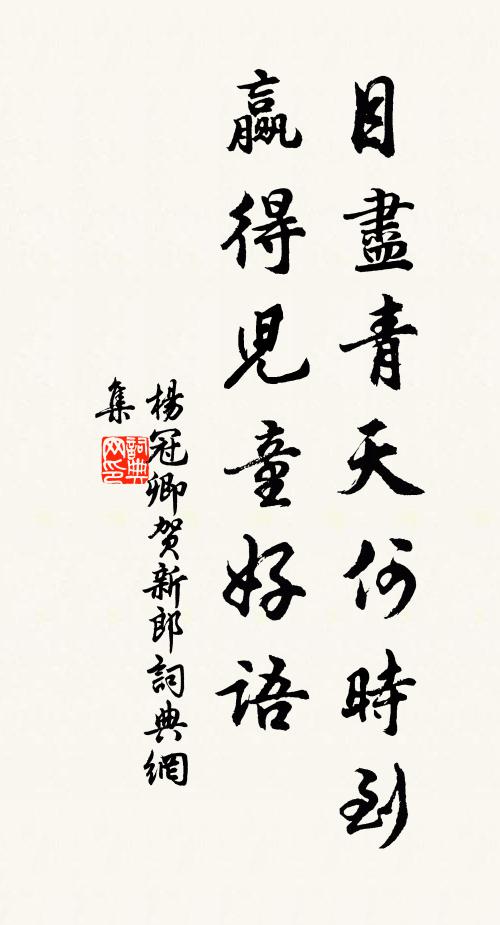 目盡青天何時到
贏得兒童好語
楊冠卿賀新郎詞典網
集
詞典
网印